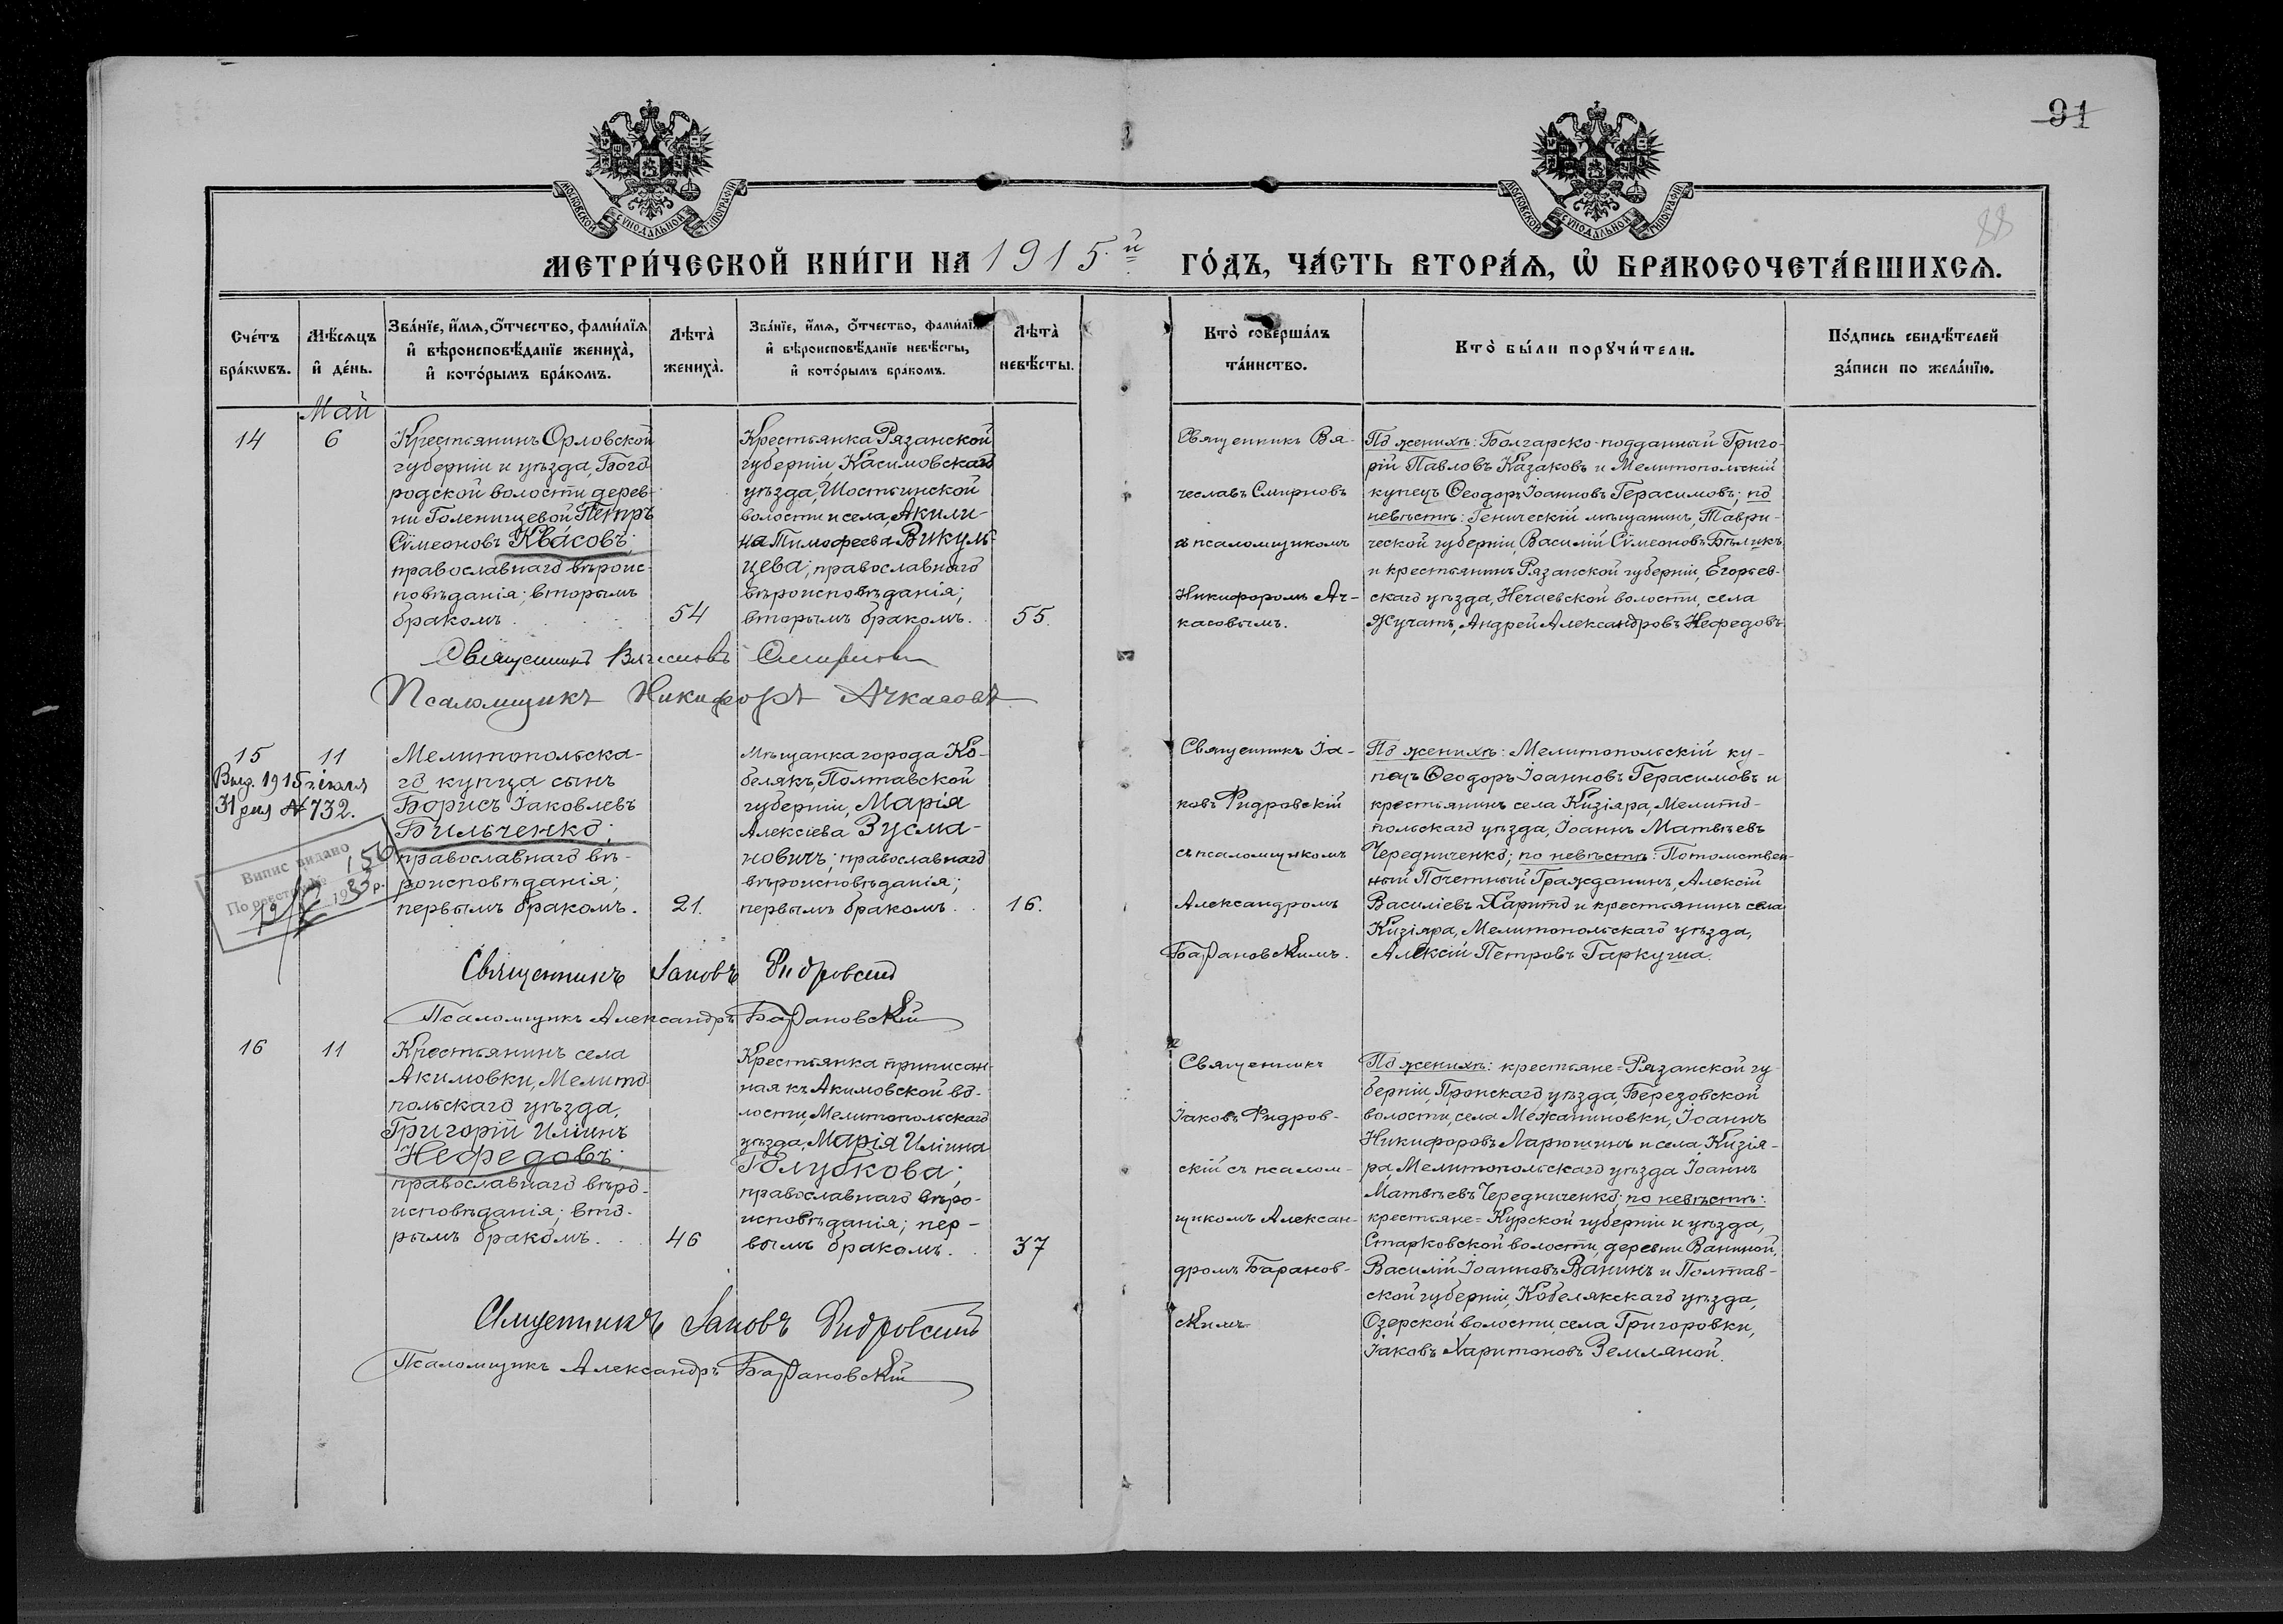 91
88
МОСКОВСКОЙ СУНОДАЛЬНОЙ ТИПОГРАФІИ
МОСКОВСКОЙ СУНОДАЛЬНОЙ ТИПОГРАФІИ
МЕТРИ́ЧЕСКОЙ КНИ́ГИ НА 1915й ГО́ДЪ, ЧА́СТЬ ВТОРА́Ѧ, Ѽ БРАКОСОЧЕТА́ВШИХСѦ.
Сче́тъ бра́кѡвъ.
Мѣ́сѧцъ и҆ де́нь.
Зва́нїе, и҆́мѧ, ѻ҆́тчество, фами́лїѧ
и҆ вѣроисповѣ́данїе жениха̀,
и҆ кото́рымъ бра́комъ.
Лѣ́та жениха̀.
Зва́нїе, и҆́мѧ, ѻ҆́тчество, фами́лїѧ
и҆ вѣроисповѣ́данїе невѣ́сты,
и҆ кото́рымъ бра́комъ.
Лѣ́та невѣ́сты.
Кто̀ соверша́лъ та́инство.
Кто̀ бы́ли порꙋчи́тели.
По́дпись свидѣ́телей
за́писи по жела́нїю.
Май
14
6
Крестьянинъ Орловской
губерніи и уѣзда, Бого-
родской волости, дерев-
ни Голенищевой Петръ
Сѵмеоновъ Квасовъ;
православнаго вѣроис-
повѣданія; вторымъ
бракомъ.
54
Крестьянка Рязанской
губерніи, Касимовскаго
уѣзда, Шостьинской
волости и села, Акили-
на Тимофеева Викуль-
цева; православнаго
вѣроисповѣданія;
вторымъ бракомъ.
55.
Священникъ Вя-
чеславъ Смирновъ
съ псаломщикомъ
Никифоромъ Ач-
касовымъ.
По женихѣ: Болгарско-подданный Григо-
рій Павловъ Казаковъ и Мелитопольскій
купецъ Ѳеодоръ Іоанновъ Герасимовъ; по
невѣстѣ: Геническій мѣщанинъ, Таври-
ческой губерніи, Василій Сѵмеоновъ Бѣликъ
и крестьянинъ Рязанской губерніи, Егорьев-
скаго уѣзда, Нечаевской волости, села
Жучатъ, Андрей Александровъ Нефедовъ
Священникъ Вячеславъ Смирновъ
Псаломщикъ Никифоръ Ачкасовъ
15
11
Выд. 1915 г. іюля
31 дня № 732.
Випис видано
По реєстру №
156
19
83 р.
Мелитопольска-
го купца сынъ
Борисъ Іаковлевъ
Бильченко;
православнаго вѣ-
роисповѣданія;
первымъ бракомъ.
21.
Мѣщанка города Ко-
белякъ, Полтавской
губерніи, Марія
Алексіева Зусма-
новичъ; православнаго
вѣроисповѣданія;
первымъ бракомъ.
16.
Священникъ Іа-
ковъ Фидровскій
съ псаломщикомъ
Александромъ
Барановскимъ.
По женихѣ: Мелитопольскій ку-
пецъ Ѳеодоръ Іоанновъ Герасимовъ и
крестьянинъ села Кизіяра, Мелито-
польскаго уѣзда, Іоаннъ Матвѣевъ
Чередниченко; по невѣстѣ: Потомствен-
ный Почетный Гражданинъ, Алексій
Василіевъ Харито и крестьянинъ села
Кизіяра, Мелитопольскаго уѣзда,
Алексій Петровъ Гаркуша.
Священникъ Іаковъ Фидровскій
Псаломщикъ Александръ Барановскій
16
11
Крестьянинъ села
Акимовки, Мелито-
польскаго уѣзда,
Григорій Иліинъ
Нефедовъ;
православнаго вѣро-
исповѣданія; вто-
рымъ бракомъ.
46
Крестьянка приписан-
ная къ Акимовской во-
лости, Мелитопольскаго
уѣзда, Марія Иліина
Голубкова;
православнаго вѣро-
исповѣданія; пер-
вымъ бракомъ.
37
Священникъ
Іаковъ Фидров-
скій съ псалом-
щикомъ Алексан-
дромъ Баранов-
скимъ
По женихѣ: крестьяне=Рязанской гу-
берніи, Пронскаго уѣзда, Березовской
волости, села Межаниновки, Іоаннъ
Никифоровъ Ларюшинъ и села Кизія-
ра, Мелитопольскаго уѣзда Іоаннъ
Матвѣевъ Чередниченко; по невѣстѣ:
крестьяне=Курской губерніи и уѣзда,
Старковской волости, деревни Ваниной,
Василій Іоанновъ Ванинъ и Полтав-
ской губерніи, Кобелякскаго уѣзда,
Озерской волости, села Григоровки,
Іаковъ Харитоновъ Земляной.
Священникъ Іаковъ Фидровскій
Псаломщикъ Александръ Барановскій